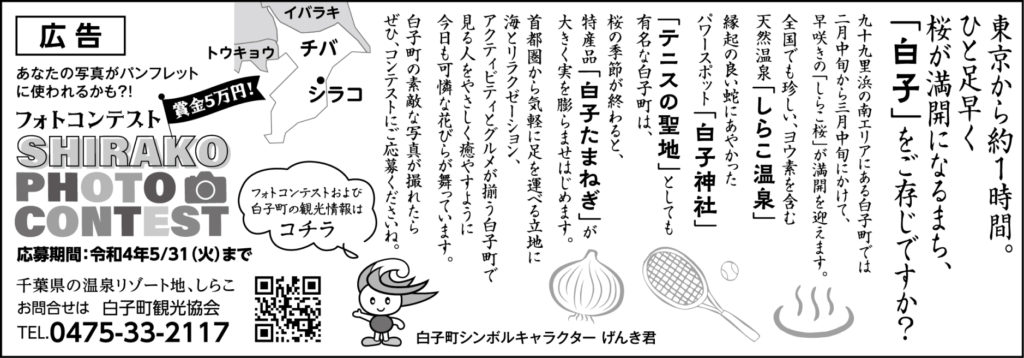 東京から約1時間。
ひと足早く
桜が満開になるまち、
「白子」をご存じですか？
九十九里浜の南エリアにある白子町では
二月中旬から三月中旬にかけて、
早咲きの「しらこ桜」が満開を迎えます。
全国でも珍しい、ヨウ素を含む
天然温泉「しらこ温泉」
縁起の良い蛇にあやかった
パワースポット「白子神社」
「テニスの聖地」としても
有名な白子町は、
桜の季節が終わると、
特産品「白子たまねぎ」が
大きく実を膨らませはじめます。
首都圏から気軽に足を運べる立地に
海とリラクゼーション、
アクティビティとグルメが揃う白子町で
見る人をやさしく癒やすように
今日も可憐な花びらが舞っています。
白子町の素敵な写真が撮れたら
ぜひ、コンテストにご応募くださいね。
広告
イバラキ
トウキョウ
チバ
シラコ
あなたの写真がパンフレット
に使われるかも?!
賞金5万円!
フォトコンテスト
SHIRAKO
PHOTO
CONTEST
応募期間:令和4年5/31(火)まで
フォトコンテストおよび
白子町の観光情報は
コチラ
千葉県の温泉リゾート地、しらこ
お問合せは 白子町観光協会
TEL.0475-33-2117
白子町シンボルキャラクター げんき君